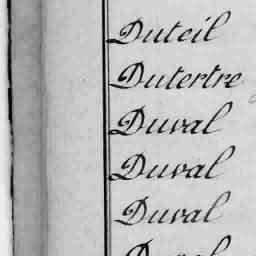 Duteil
Dutertre
Duval
Duval
Duval
Duval